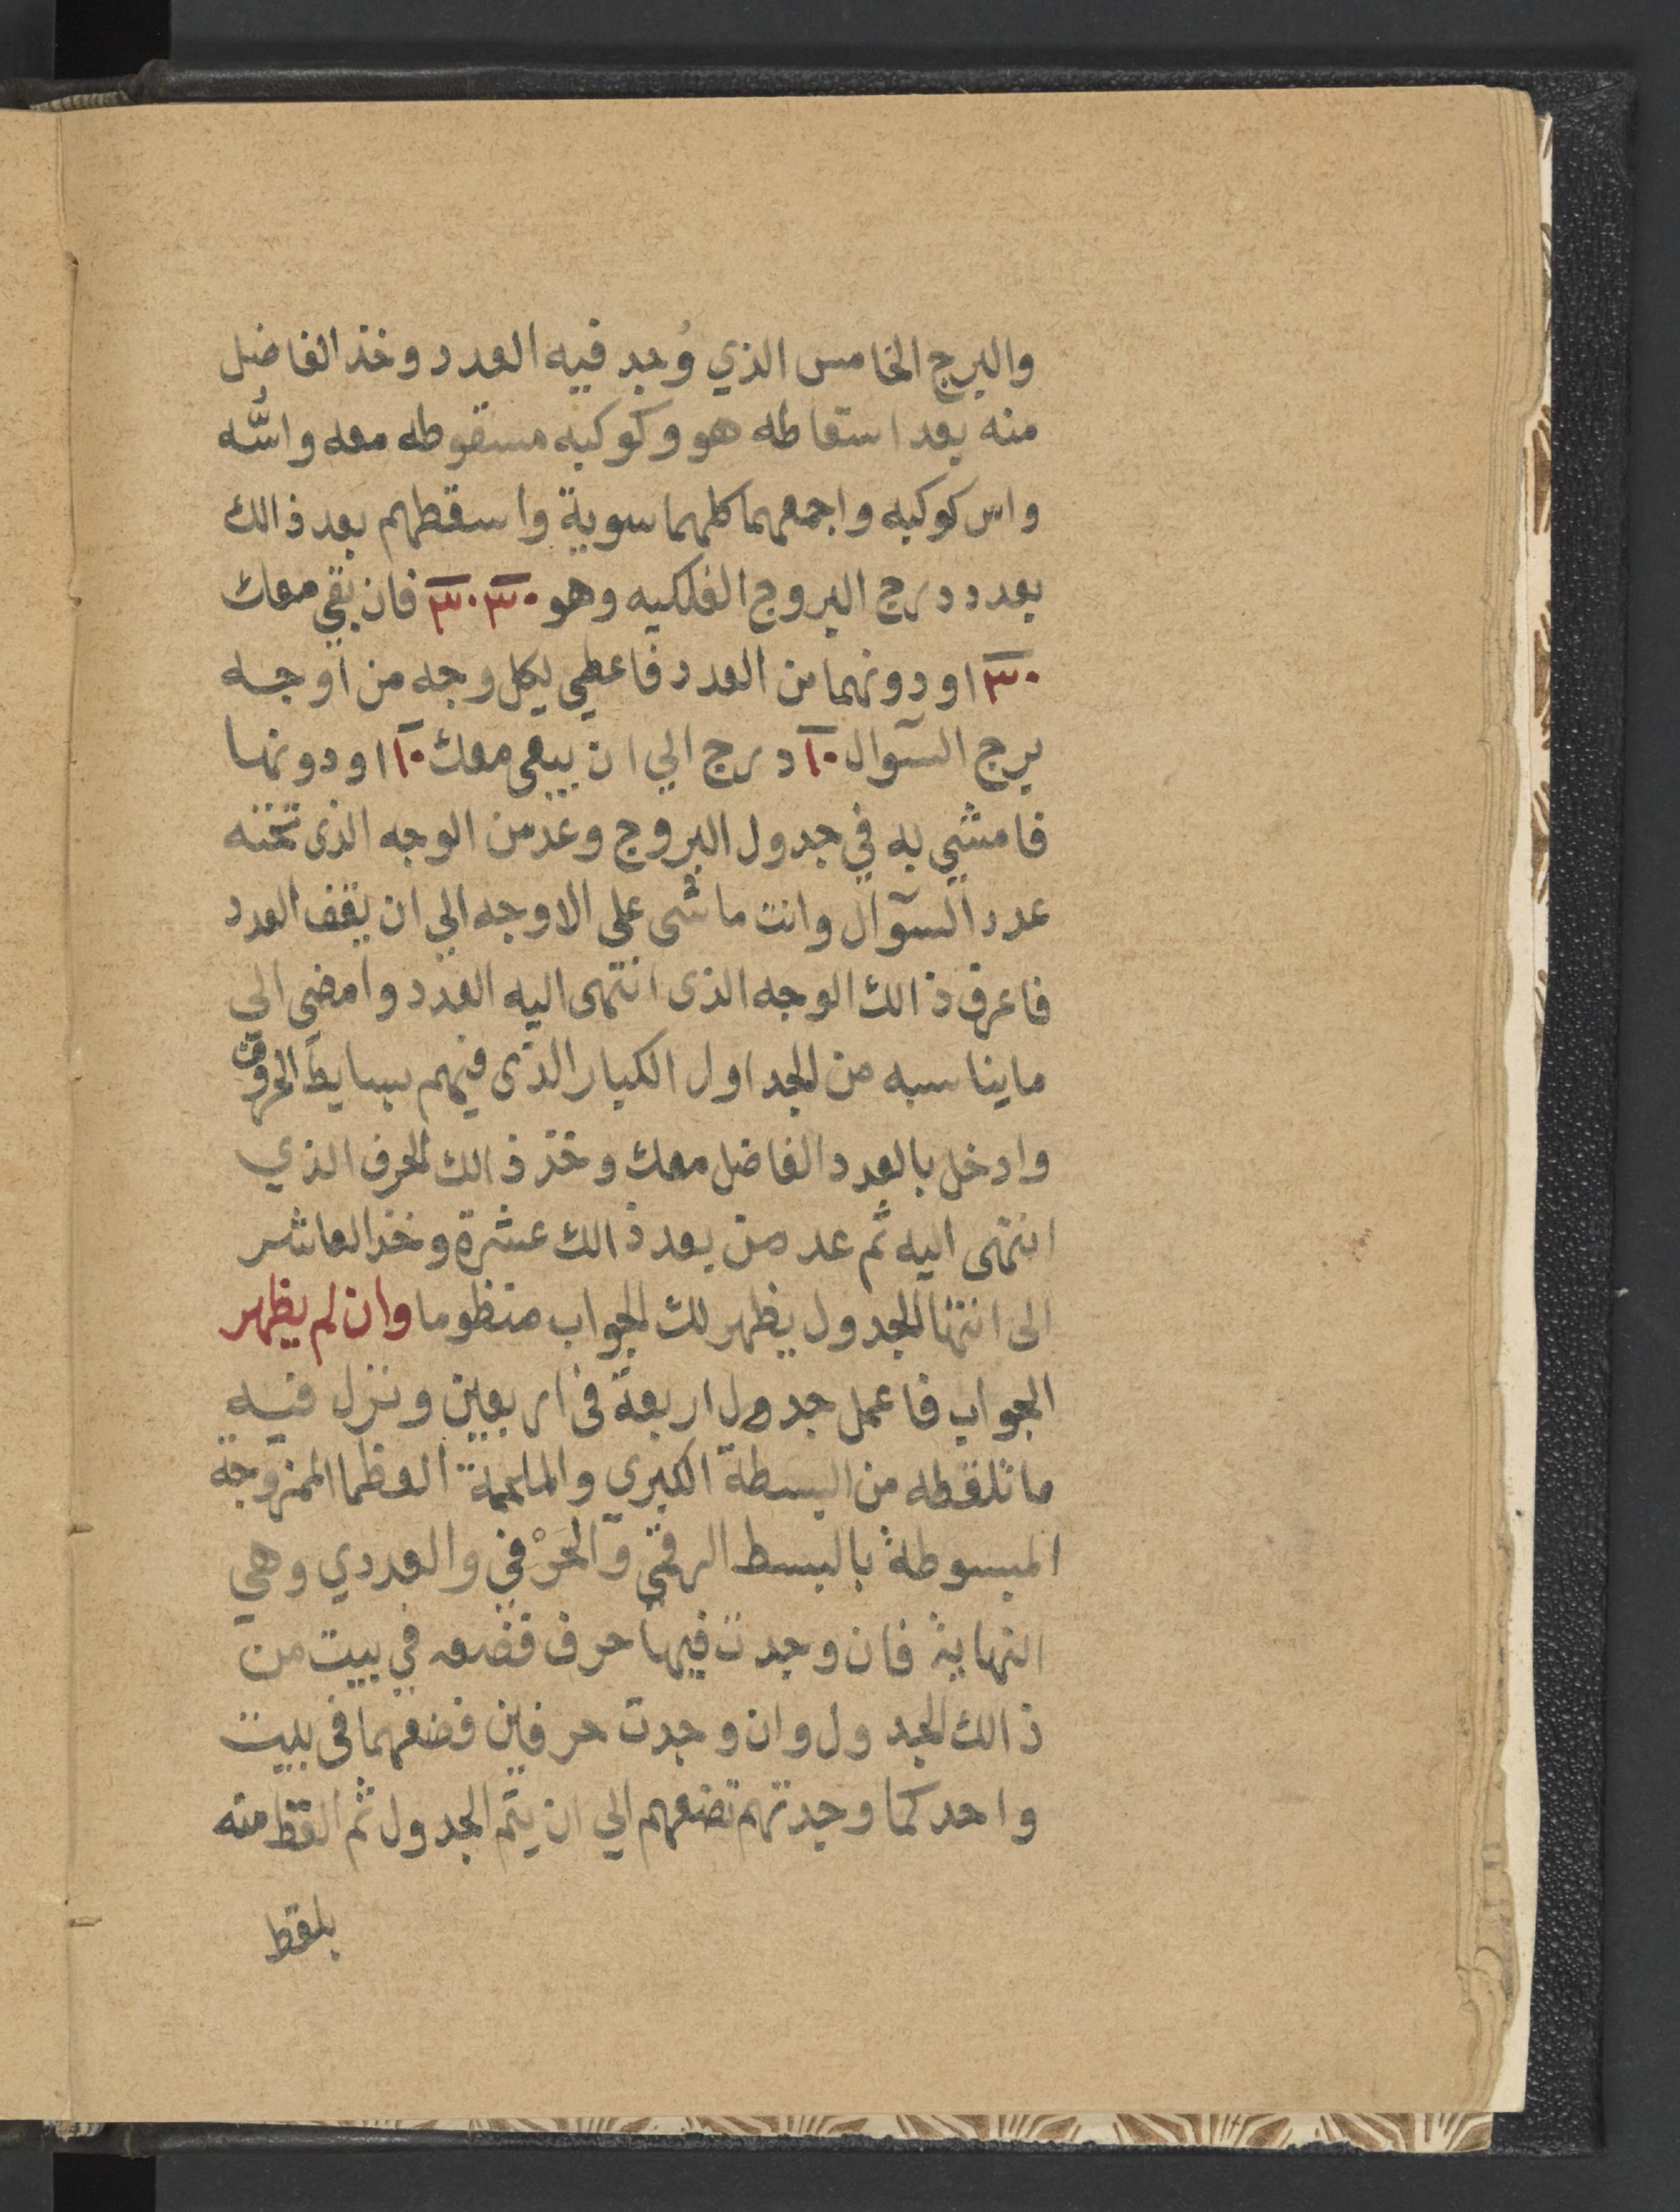 والبرج الخامس الذي وُجد فيه العدد وخذ الفاضل
منه بعد اسقاطه هو وكوكبه مسقوطه معه واسُّه
واس كوكبه واجمعهما كلهما سوية واسقطهم بعد ذالك
بعدد درج البروج الفلكيه وهو ٣٠ ٣٠ فان بقي معك
٣٠ او دونهما من العدد فاعطي لكل وجه من اوجه
برج السوآل ١٠ درج الي ان يبقى معك ١٠ او دونها
فامشي به في جدول البروج وعد من الوجه الذى تحته
عدد السوآل وانت ماشى على الاوجه الي ان يقف العدد
فاعرف ذالك الوجه الذى انتهى اليه العدد وامضي الي
ما يناسبه من الجداول الكبار الذى فيهم بسايط الحروف
وادخل بالعدد الفاضل معك وخذ ذالك الحرف الذي
انتهى اليه ثم عد من بعد ذالك عشرة وخذ العاشر
الى انتها الجدول يظهر لك الجواب منظوما وان لم يظهر
الجواب فاعمل جدول اربعة فى اربعين ونزل فيه
ما تلقطه من البسطة الكبري والملحمة العظما الممزوجة
المبسوطة بالبسط الرقمي والحَرْفي والعددي وهي
النهاية فان وجدت فيها حرف فضعه في بيت من
ذالك الجدول وان وجدت حرفين فضعهما فى بيت
واحد كما وجدتهم تضعهم الي ان يتم الجدول ثم القط منه
بلقط